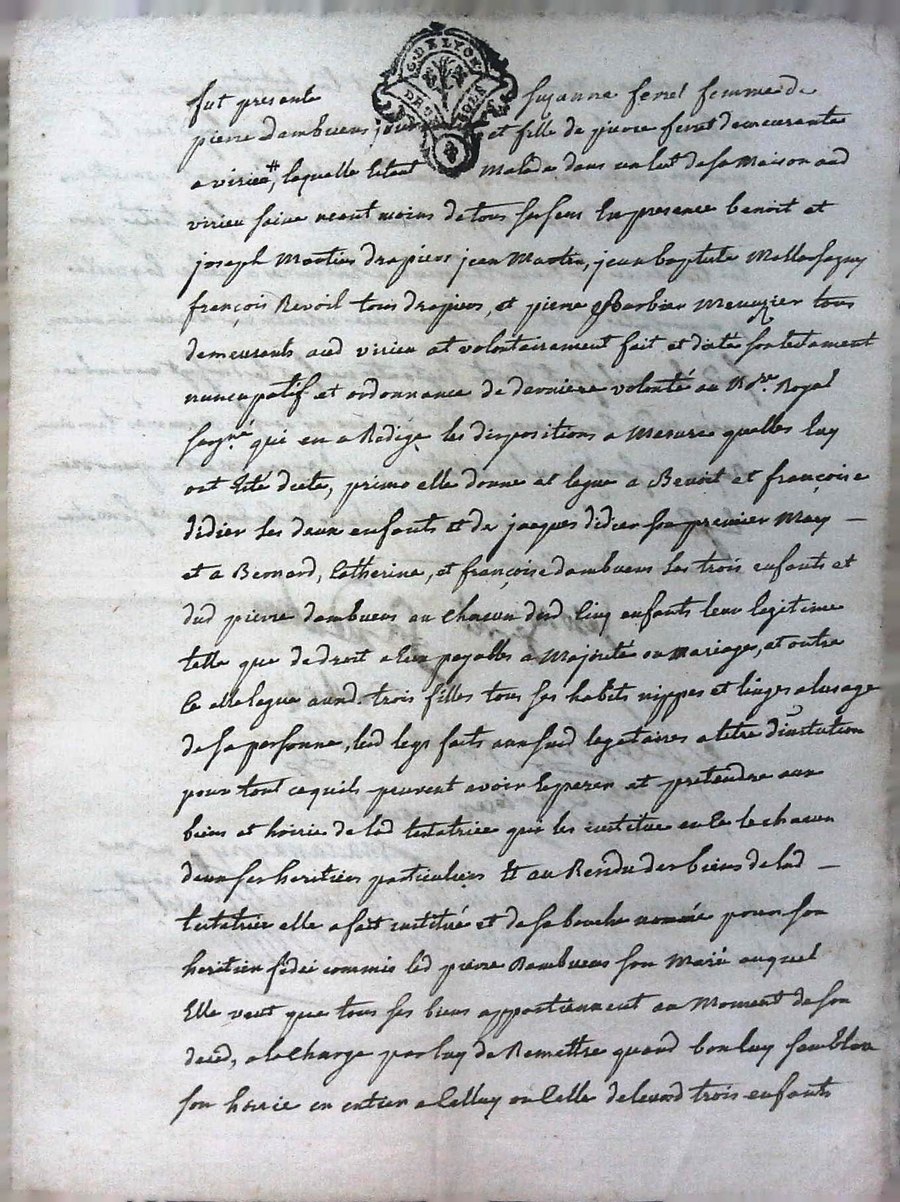 G. DE LYON
fut presente Suzanne ferret femme de
pierre dambuens jour et fille de pierre ferret demeurante
a virieu, laquelle etant Malade dans un lit de sa Maison aud
virieu saine neant moins de tous ses sens En presence benoit et
joseph Martins drapiers jean Martin, jean baptiste
françois Revoil tous drapiers, et pierre Barbier Menuzier tous
demeurants aud virieu at volontairement fait et dicté son testament
nuncupatif et ordonnance de derniere volonté au Nore. Royal
sougné. qui en a Redigé les dispositions a Mesure quelles luy
ont Eté dicté, primo elle donne et legue a Benoit et françoise
didier ses deux enfants et de jacques didier son premier Mary —
et a Bernard, Catherine, et françoise dambuens ses trois enfants et
dud pierre dambuens au chacun desd Cinq enfants leur legitime
telle que de droit a eux payables a Majorité ou mariages, et outre
Ce elle legue auxd. trois filles tous ses habits nippes et linges a lusage
de sa personne, lesd legs faits auxsusd legataires a titre d'institution
pour tout cequils peuvent avoir Esperer et pretendre aux
biens et hoirie de lad testatrice que les institue en Ce le chacun
deux ses heritiers particuliers Et au Residu des biens de lad —
testatrice elle a fait institué et de sa bouche nommé pour son
heritier fidei commis led pierre Dambuens son Mari auquel
Elle veut que tous ses biens appartiennent au Moment de son
deced, a la Charge par luy de Remettre quand bon luy semblera
son hoirie en entier a Celluy ou Celle de leursd trois enfants